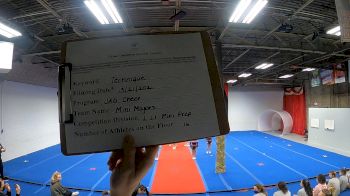 Keyword: Technique
Filming Date:
Program: JAG Cheer
Team Name: Mini Mayors
Competition Division: L1 Mini Prep
Number of Athletes on the Floor: 16